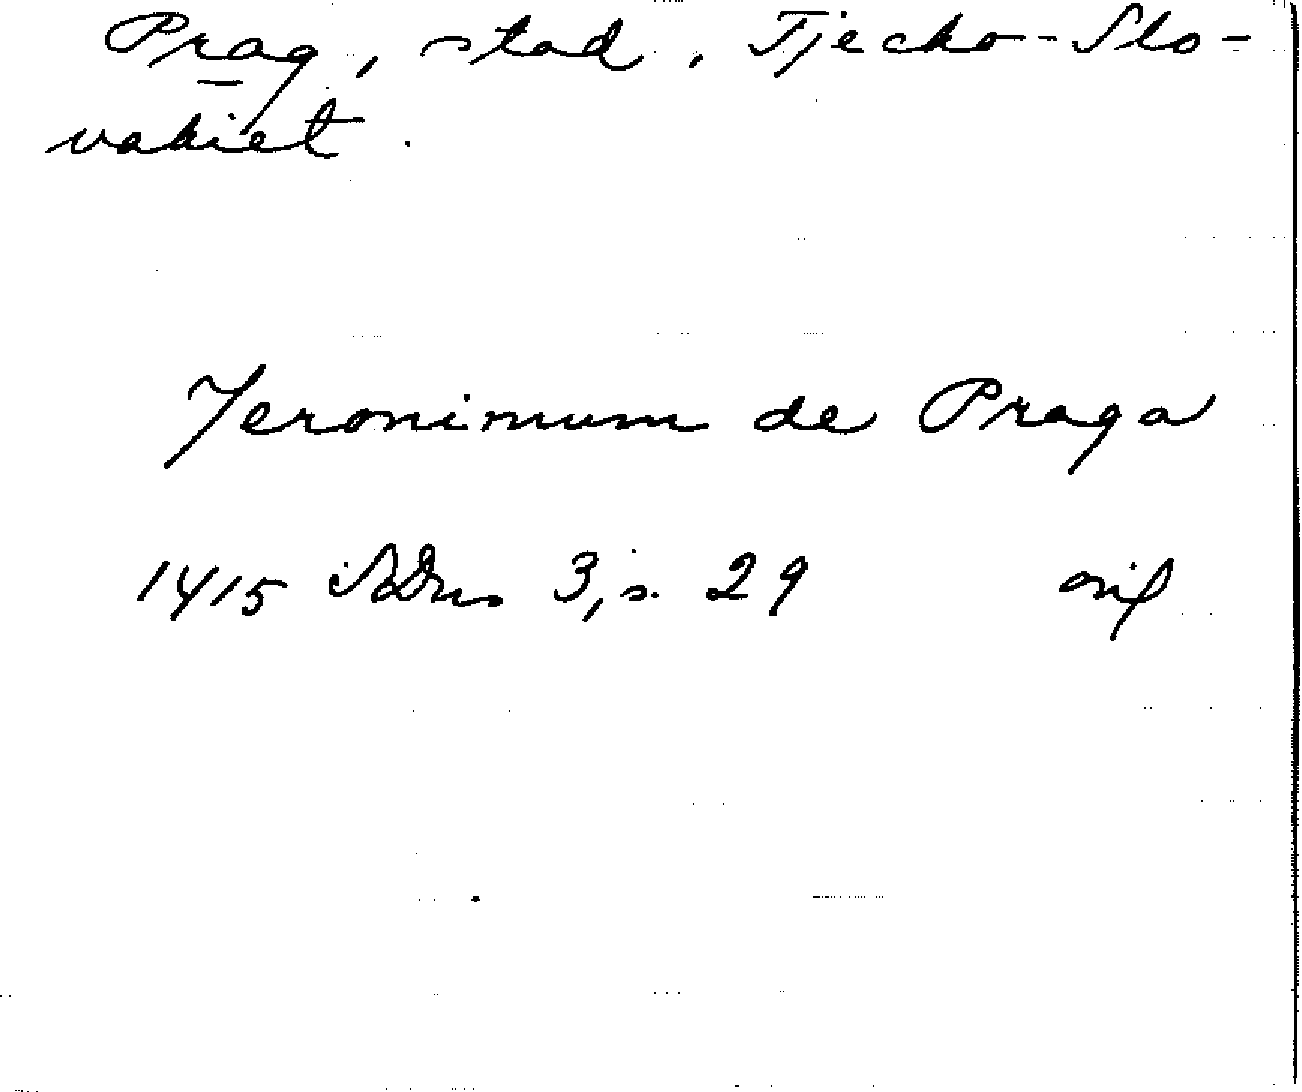 Prag, stad, Tjecko-Slo-
vakiet.
Jeronimum de Praga
1415 SDns 3, s. 29 orig